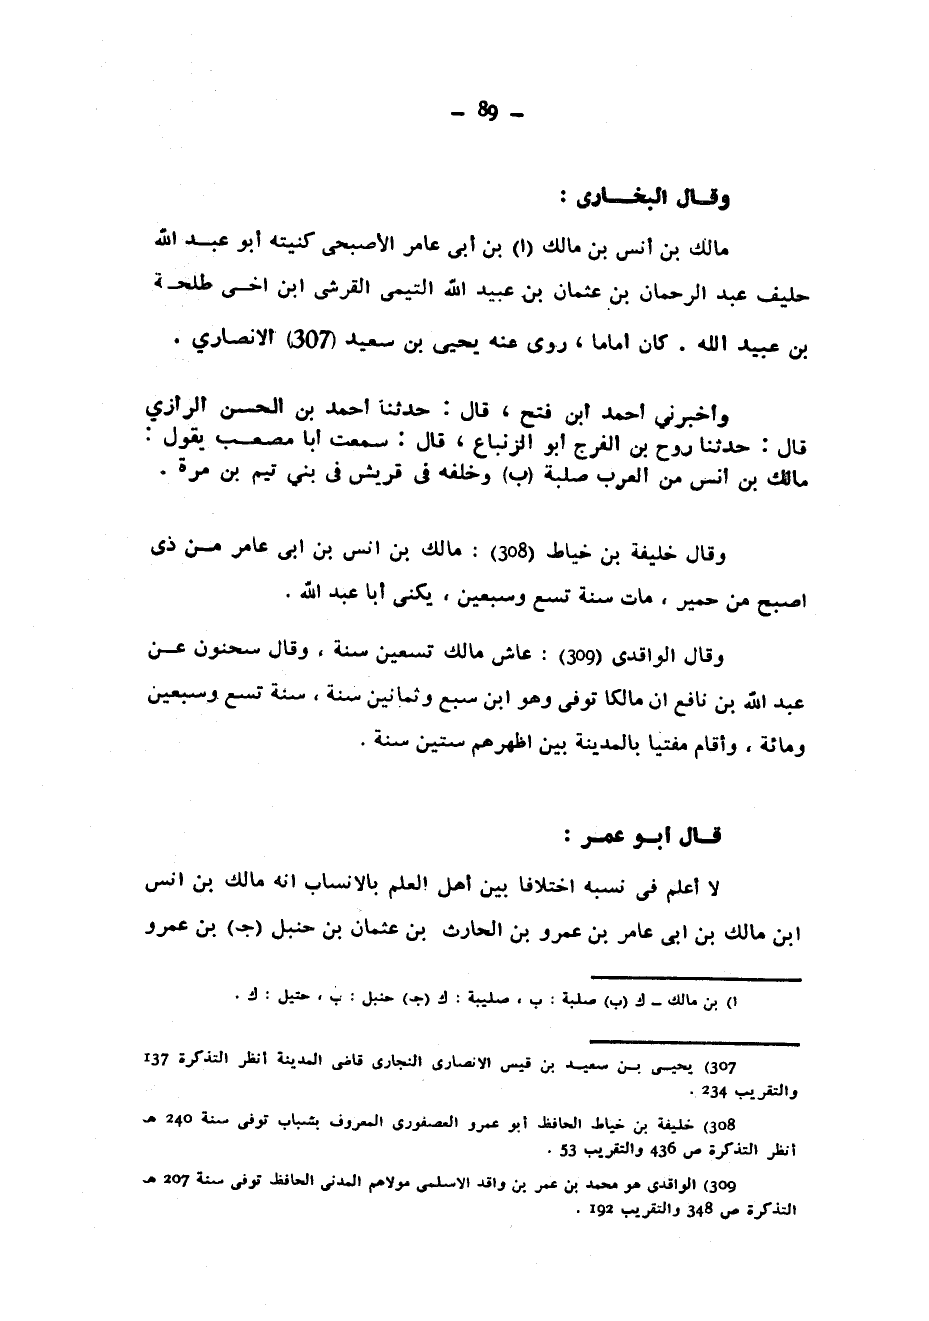 — 89 —
وقال البخارى :
مالك بن أنس بن مالك (ا) بن أبى عامر الأصبحى كنيته أبو عبد الله
حليف عبد الرحمان بن عثمان بن عبيد الله التيمى القرشى ابن اخى طلحة
بن عبيد الله . كان اماما ، روى عنه يحيى بن سعيد (307) الانصاري .
وأخبرني أحمد ابن فتح ، قال : حدثنا أحمد بن الحسن الرازي
قال : حدثنا روح بن الفرج أبو الزنباع ، قال : سمعت أبا مصعب يقول :
مالك بن أنس من العرب صلبة (ب) وخلفه فى قريش فى بني تيم بن مرة .
وقال خليفة بن خياط (308) : مالك بن انس بن ابى عامر من ذى
اصبح من حمير ، مات سنة تسع وسبعين ، يكنى أبا عبد الله .
وقال الواقدى (309) : عاش مالك تسعين سنة ، وقال سحنون عن
عبد الله بن نافع ان مالكا توفى وهو ابن سبع وثمانين سنة ، سنة تسع وسبعين
ومائة ، وأقام مفتيا بالمدينة بين اظهرهم ستين سنة .
قال أبو عمر :
لا أعلم فى نسبه اختلافا بين أهل العلم بالانساب انه مالك بن انس
ابن مالك بن ابى عامر بن عمرو بن الحارث بن عثمان بن حنبل (جـ) بن عمرو
ا) بن مالك – ك (ب) صلبة : ب ، صليبة : ك (جـ) حنبل : ب ، حتيل : ك .
307) يحيى بن سعيد بن قيس الانصارى النجارى قاضى المدينة أنظر التذكرة 137
والتقريب 234 .
308) خليفة بن خياط الحافظ أبو عمرو العصفورى المعروف بشباب توفى سنة 240 هـ
أنظر التذكرة ص 436 والتقريب 53 .
309) الواقدى هو محمد بن عمر بن واقد الاسلمى مولاهم المدنى الحافظ توفى سنة 207 هـ
التذكرة ص 348 والتقريب 192 .